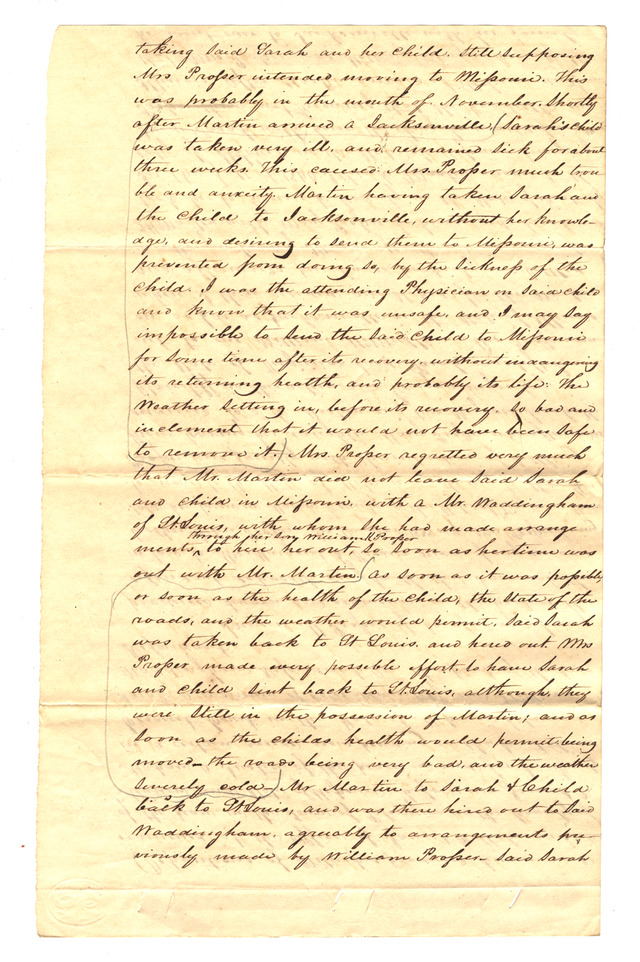 taking said Sarah and her child. Still supposing
Mrs. Prosser intended moving to Missouri. This
was probably in the month of November. Shortly
after Martin arrived a Jacksonville, (Sarah's child
was taken very ill, and remained sick for about
three weeks. This caused Mrs. Prosser much trou
ble and anxiety. Martin having taken Sarah and
the child to Jacksonville, without her knowle-
dge, and desiring to send them to Missouri, was
prevented from doing so, by the sickness of the
child. I was the attending Physician on said child
and know that it was unsafe, and I may say
impossible to send the said child to Missouri
for some time after its recovery, without indangering
its returning health, and probably its life: The
Weather setting in, before its recovery. So bad and
inclement that it would not have been safe
to remove it.) Mrs. Prosser regretted very much
that Mr. Martin did not leave said Sarah
and child in Missouri, with a Mr. Waddingham
of St. Louis, with whom she had made arrange
through her son William H. Prosser
ments, to hire her out, so soon as her time was
out with Mr. Martin (as soon as it was possible
or soon as the health of the child, the state of the
roads, and the weather would permit, said Sarah
was taken back to St Louis. and hired out. Mrs
Prosser made every possible effort, to have Sarah
and child sent back to St. Louis, although, they
were still in the possession of Martin; and as
soon as the childs health would permit being
moved - the roads being very bad, and the weather
severely cold -) Mr Martin to Sarah & Child
back to St Louis, and was then hired out to said
Waddingham. agreeably to arrangements pre-
viously made by William Prosser - said Sarah